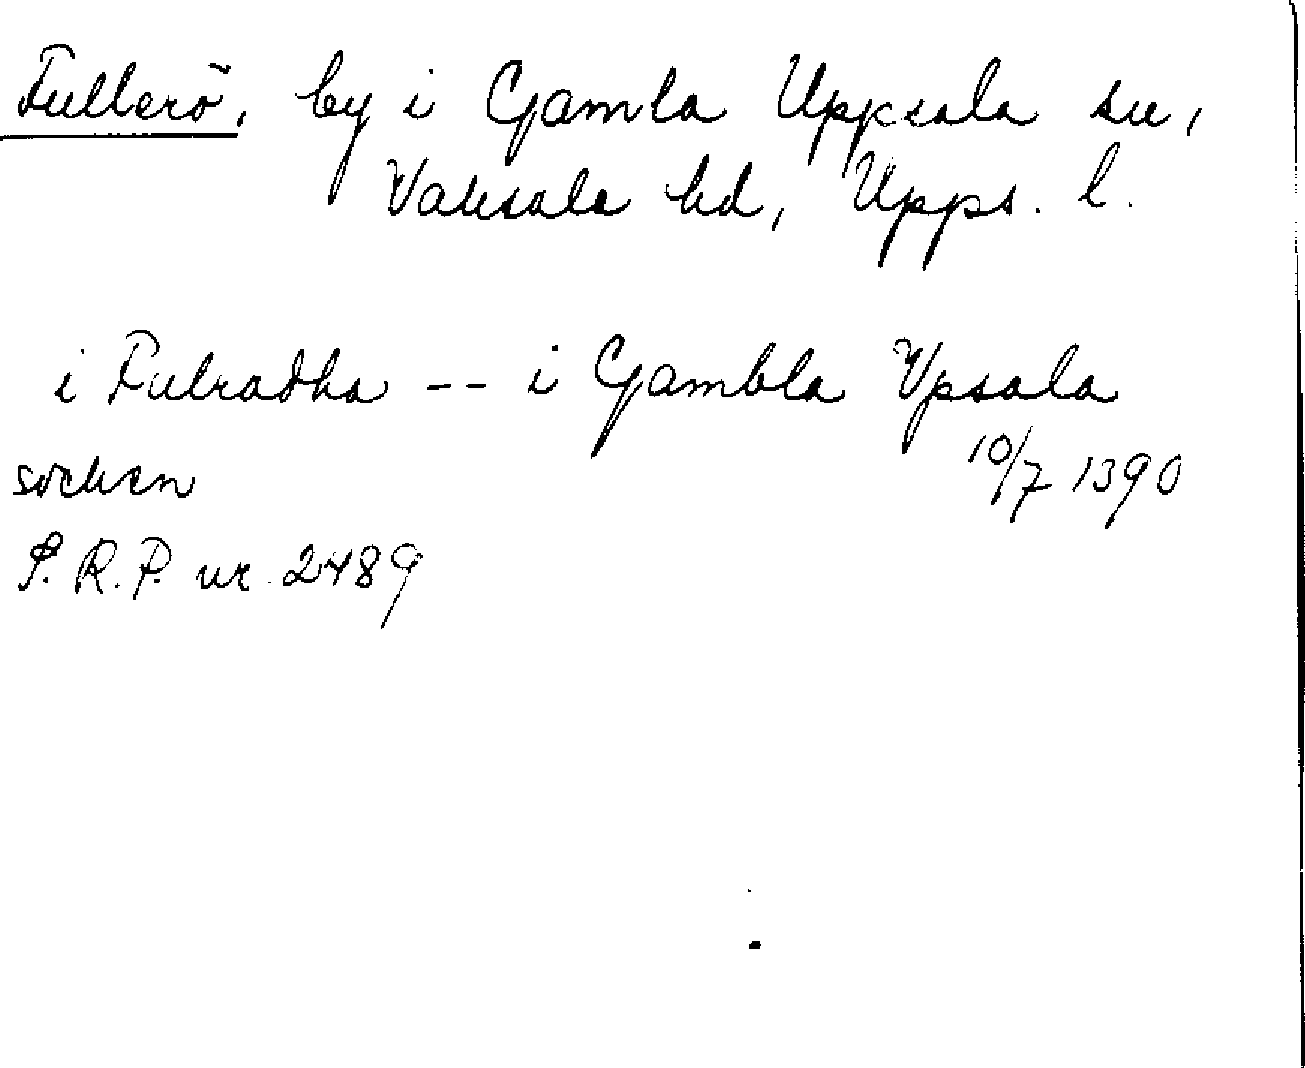 Fullerö, by i Gamla Uppsala sn,
Vaksala hd, Upps. l.
i Fulradha -- i Gambla Vpsala
sokn
10/7 1390
S.R.P. nr. 2489